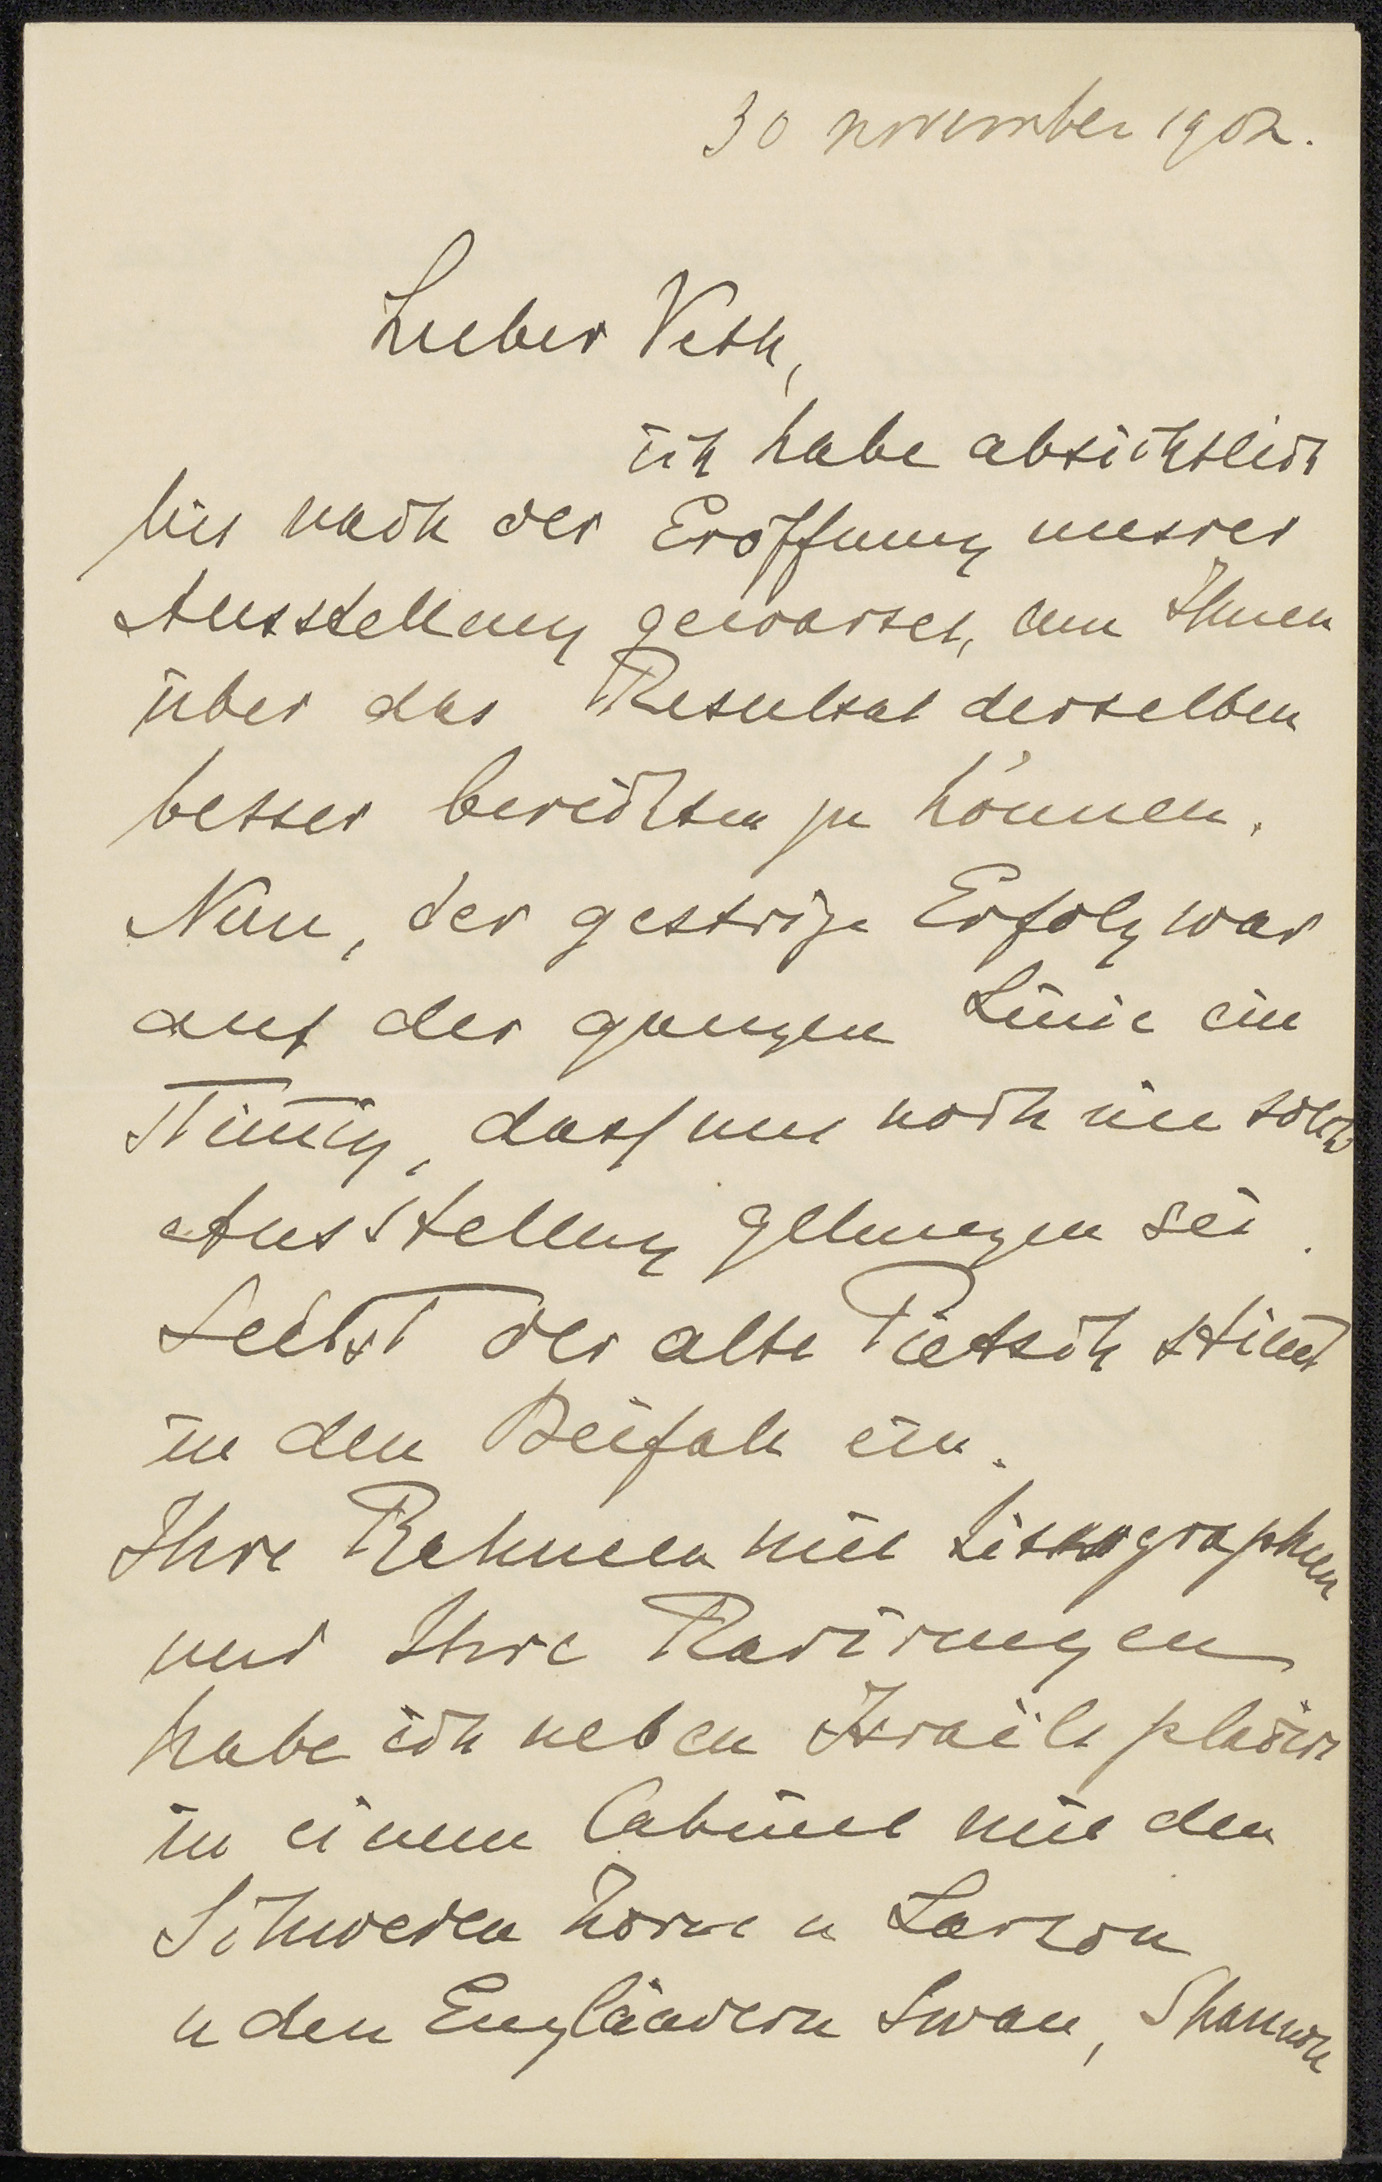 30 november 1902.
Lieber Veth,
ich habe absichtlich
bis nach der Eröffnung unsrer
Ausstellung gewartet, um Ihnen
über das Resultat derselben
besser berichten zu können.
Nun, der gestrige Erfolg war
auf der ganzen Linie ein
, dass uns noch nie solche
Ausstellung gelungen sei.
Selbst der alte Pietsch stimmt
in den Beifall ein.
Ihre Rahmen mit Lithographien
und Ihre Radirungen
habe ich neben Israëls placirt
in einem Cabinet mit den
Schweden Zorn u Larson
u den Engländern Swan, Shannon